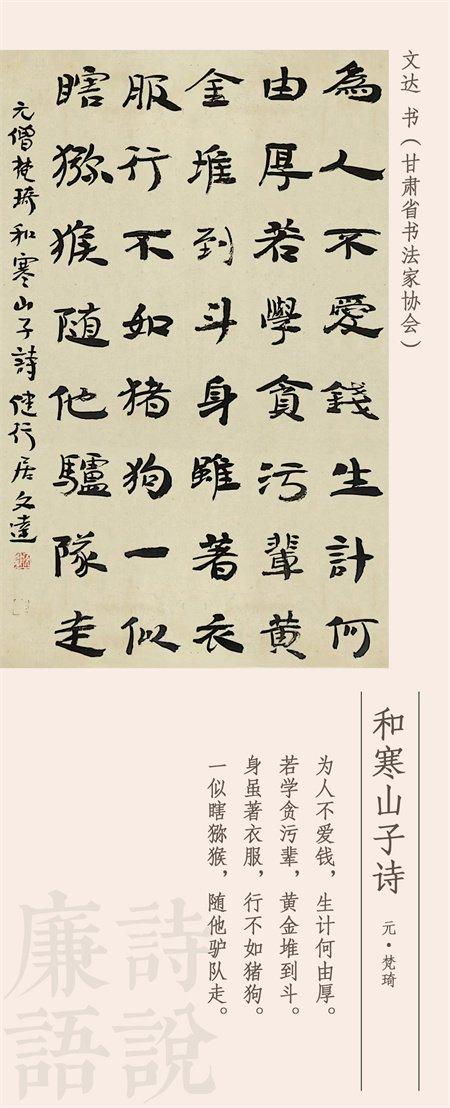 文达 书（甘肃省书法家协会）
為人不爱錢生計何
由厚若學貪污輩黄
金堆到斗身雖著衣
服行不如猪狗一似
瞎猕猴随他驢隊走
元僧梵琦和寒山子詩 健行居文達
和寒山子诗
元·梵琦
为人不爱钱，生计何由厚。
若学贪污辈，黄金堆到斗。
身虽著衣服，行不如猪狗。
一似瞎猕猴，随他驴队走。
詩說
廉語